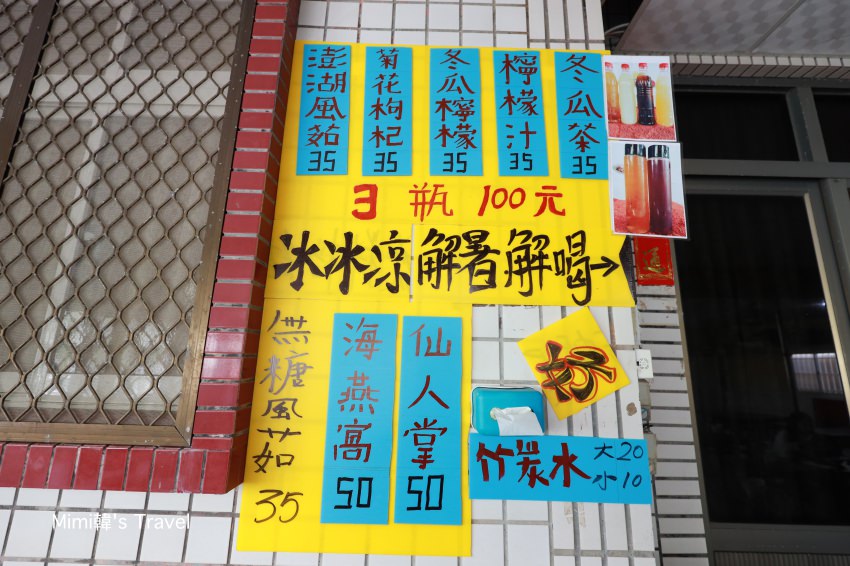 澎湖風茹 35
菊花枸杞 35
冬瓜檸檬 35
檸檬汁 35
冬瓜茶 35
3瓶100元
冰冰涼解暑解喝→
無糖風茹 35
海燕窩 50
仙人掌 50
竹炭水 大20 小10
Mimi韓's Travel